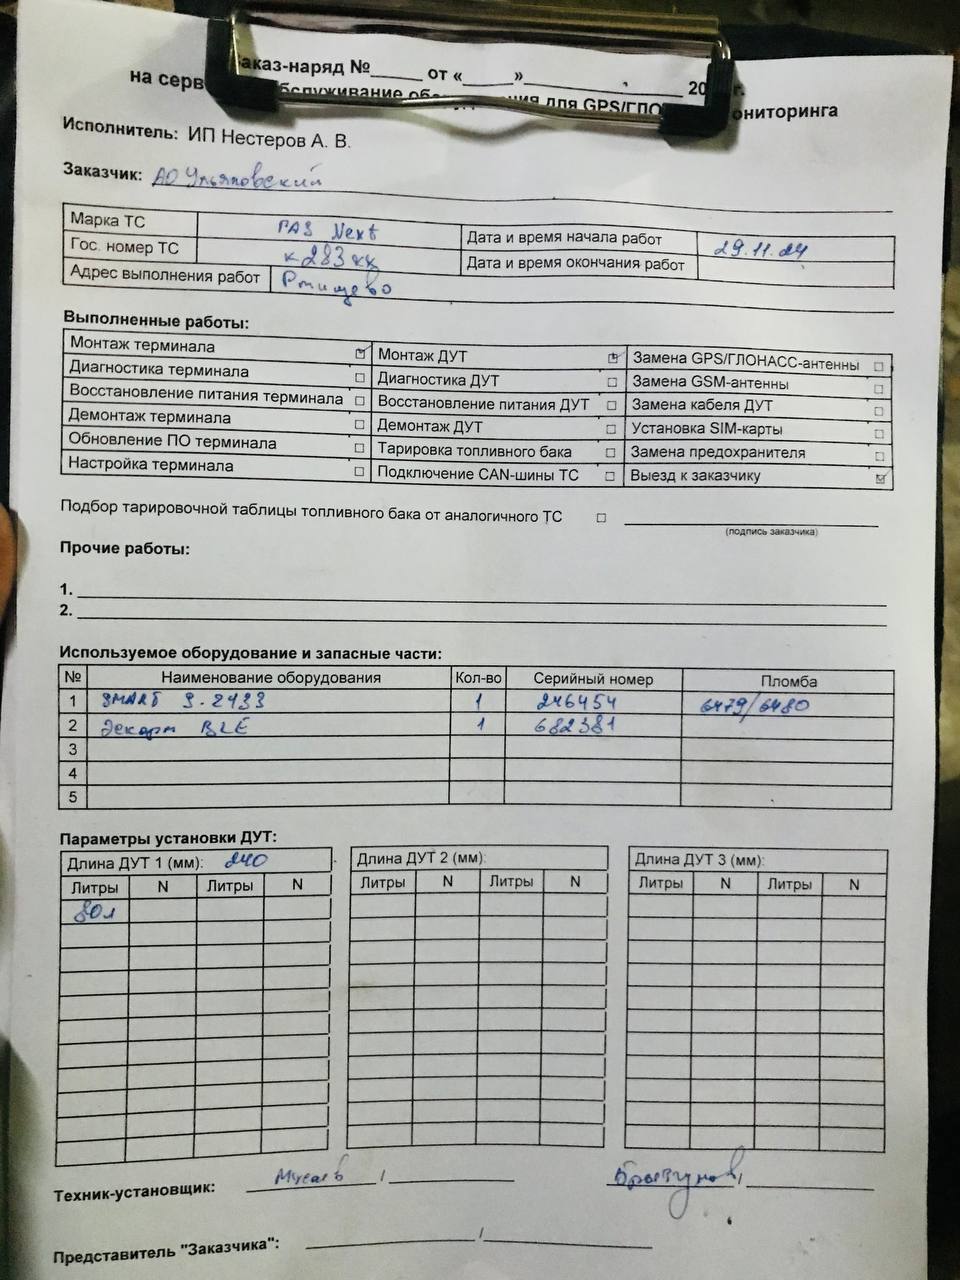 Заказ-наряд №______ от «_____»__________, ______ 20 г.
на серв бслуживание обо ния для GPS/ГЛО ониторинга
Исполнитель: ИП Нестеров А. В.
Заказчик: АО Ульяновский
Марка ТС ГАЗ Next Дата и время начала работ 29.11.24
Гос. номер ТС к283кк Дата и время окончания работ
Адрес выполнения работ Ртищево
Выполненные работы:
Монтаж терминала ☑ Монтаж ДУТ ☑ Замена GPS/ГЛОНАСС-антенны □
Диагностика терминала □ Диагностика ДУТ □ Замена GSM-антенны □
Восстановление питания терминала □ Восстановление питания ДУТ □ Замена кабеля ДУТ □
Демонтаж терминала □ Демонтаж ДУТ □ Установка SIM-карты □
Обновление ПО терминала □ Тарировка топливного бака □ Замена предохранителя □
Настройка терминала □ Подключение CAN-шины ТС □ Выезд к заказчику ☑
Подбор тарировочной таблицы топливного бака от аналогичного ТС □
(подпись заказчика)
Прочие работы:
1.
2.
Используемое оборудование и запасные части:
№ Наименование оборудования Кол-во Серийный номер Пломба
1 SMART S-2433 1 246454 6479/6480
2 Эскорт BLE 1 682381
3
4
5
Параметры установки ДУТ:
Длина ДУТ 1 (мм): 240 Длина ДУТ 2 (мм): Длина ДУТ 3 (мм):
Литры N Литры N Литры N Литры N Литры N Литры N
80л
Техник-установщик: Мусаев /
Представитель "Заказчика": /